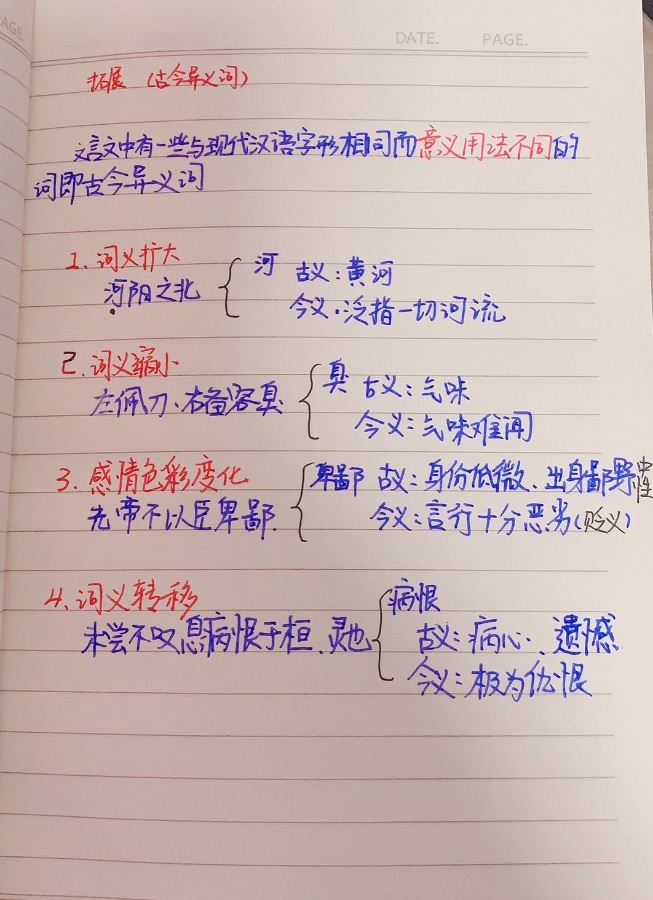 DATE. PAGE.
AGE
拓展 (古今异义词)
文言文中有一些与现代汉语字形相同而意义用法不同的
词即古今异义词
1. 词义扩大
河阳之北 河 古义:黄河
今义·泛指一切河流
2. 词义缩小
左佩刀、右备容臭 臭 古义:气味
今义:气味难闻
3. 感情色彩变化
先帝不以臣卑鄙. 卑鄙 古义:身份低微、出身鄙野 中性
今义:言行十分恶劣(贬义)
4. 词义转移
未尝不叹息病恨于桓、灵也 病恨
古义:病心、遗憾
今义:极为仇恨